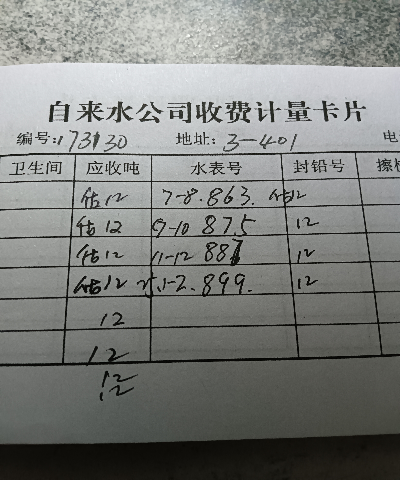 自来水公司收费计量卡片
编号:173130 地址: 3-401 电
卫生间 应收吨 水表号 封铅号 擦
估12 7-8. 863. 估12
估12 9-10 875 12
估12 11-12 887 12
估12 25.1-2. 899. 12
12
12
12